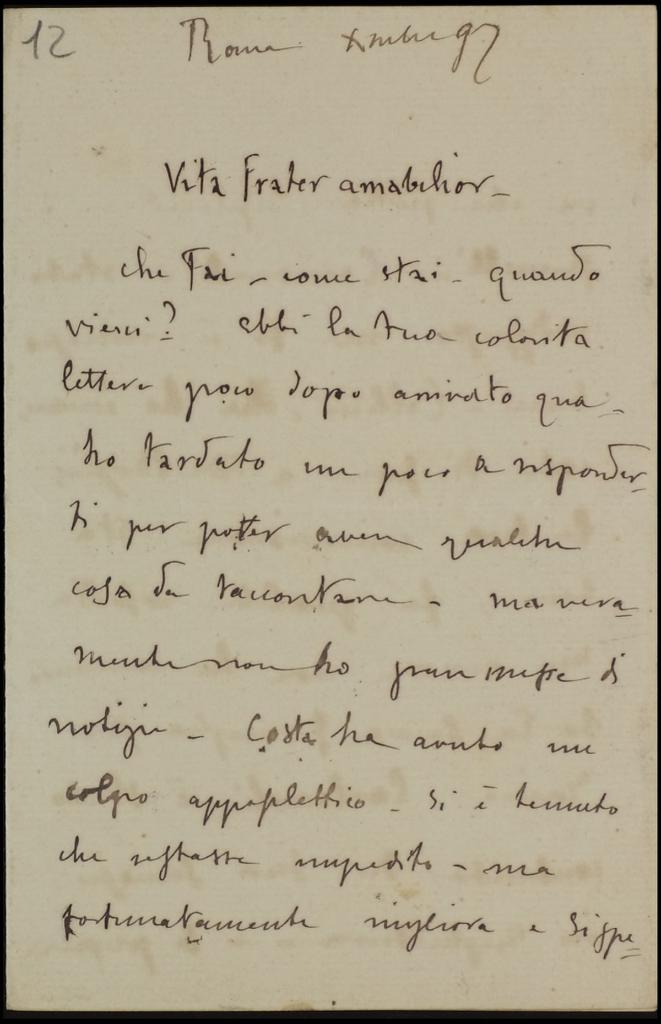 12 Roma Xmbre 97
Vita Frater amabilior -
che fai - come stai - quando
vieni? ebbi la tua colorita
lettera poco dopo arrivato qua -
ho tardato un poco a risponder-
ti per potter avere qualche
cosa da raccontare - ma vera=
mente non ho gran messe di
notizie - Costa ha avuto un
colpo appoplettico - si è temuto
che restasse impedito - ma
fortunatamente migliora e si spe=